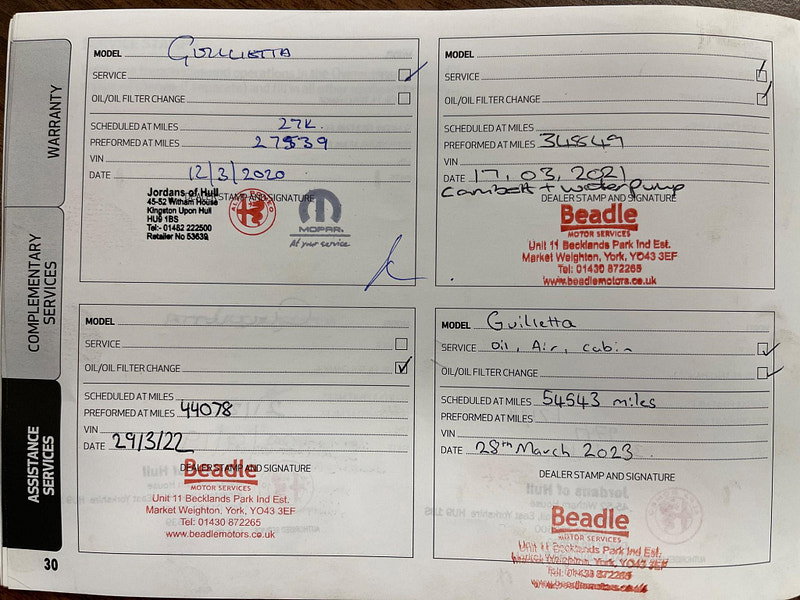 WARRANTY
COMPLEMENTARY
SERVICES
ASSISTANCE
SERVICES
30
MODEL GUILLIETTA
SERVICE
OIL/OIL FILTER CHANGE
SCHEDULED AT MILES 27K
PREFORMED AT MILES 27539
VIN
DATE 12/3/2020
DEALER STAMP AND SIGNATURE
Jordans of Hull
45-52 Witham House
Kingston Upon Hull
HU9 1BS
Tel:- 01482 222500
Retailer No 53639
ALFA ROMEO
MOPAR
At your service
MODEL
SERVICE
OIL/OIL FILTER CHANGE
SCHEDULED AT MILES
PREFORMED AT MILES 34849
VIN
DATE 17.03.2021
Cambelt + waterpump
DEALER STAMP AND SIGNATURE
Beadle
MOTOR SERVICES
Unit 11 Becklands Park Ind Est.
Market Weighton, York, YO43 3EF
Tel: 01430 872265
www.beadlemotors.co.uk
MODEL
SERVICE
OIL/OIL FILTER CHANGE
SCHEDULED AT MILES
PREFORMED AT MILES 44078
VIN
DATE 29/3/22
DEALER STAMP AND SIGNATURE
Beadle
MOTOR SERVICES
Unit 11 Becklands Park Ind Est.
Market Weighton, York, YO43 3EF
Tel: 01430 872265
www.beadlemotors.co.uk
MODEL Guilietta
SERVICE oil, Air, cabin
OIL/OIL FILTER CHANGE
SCHEDULED AT MILES 54543 miles
PREFORMED AT MILES
VIN
DATE 28th March 2023
DEALER STAMP AND SIGNATURE
Beadle
MOTOR SERVICES
Unit 11 Becklands Park Ind Est.
Market Weighton, York, YO43 3EF
Tel: 01430 872265
www.beadlemotors.co.uk